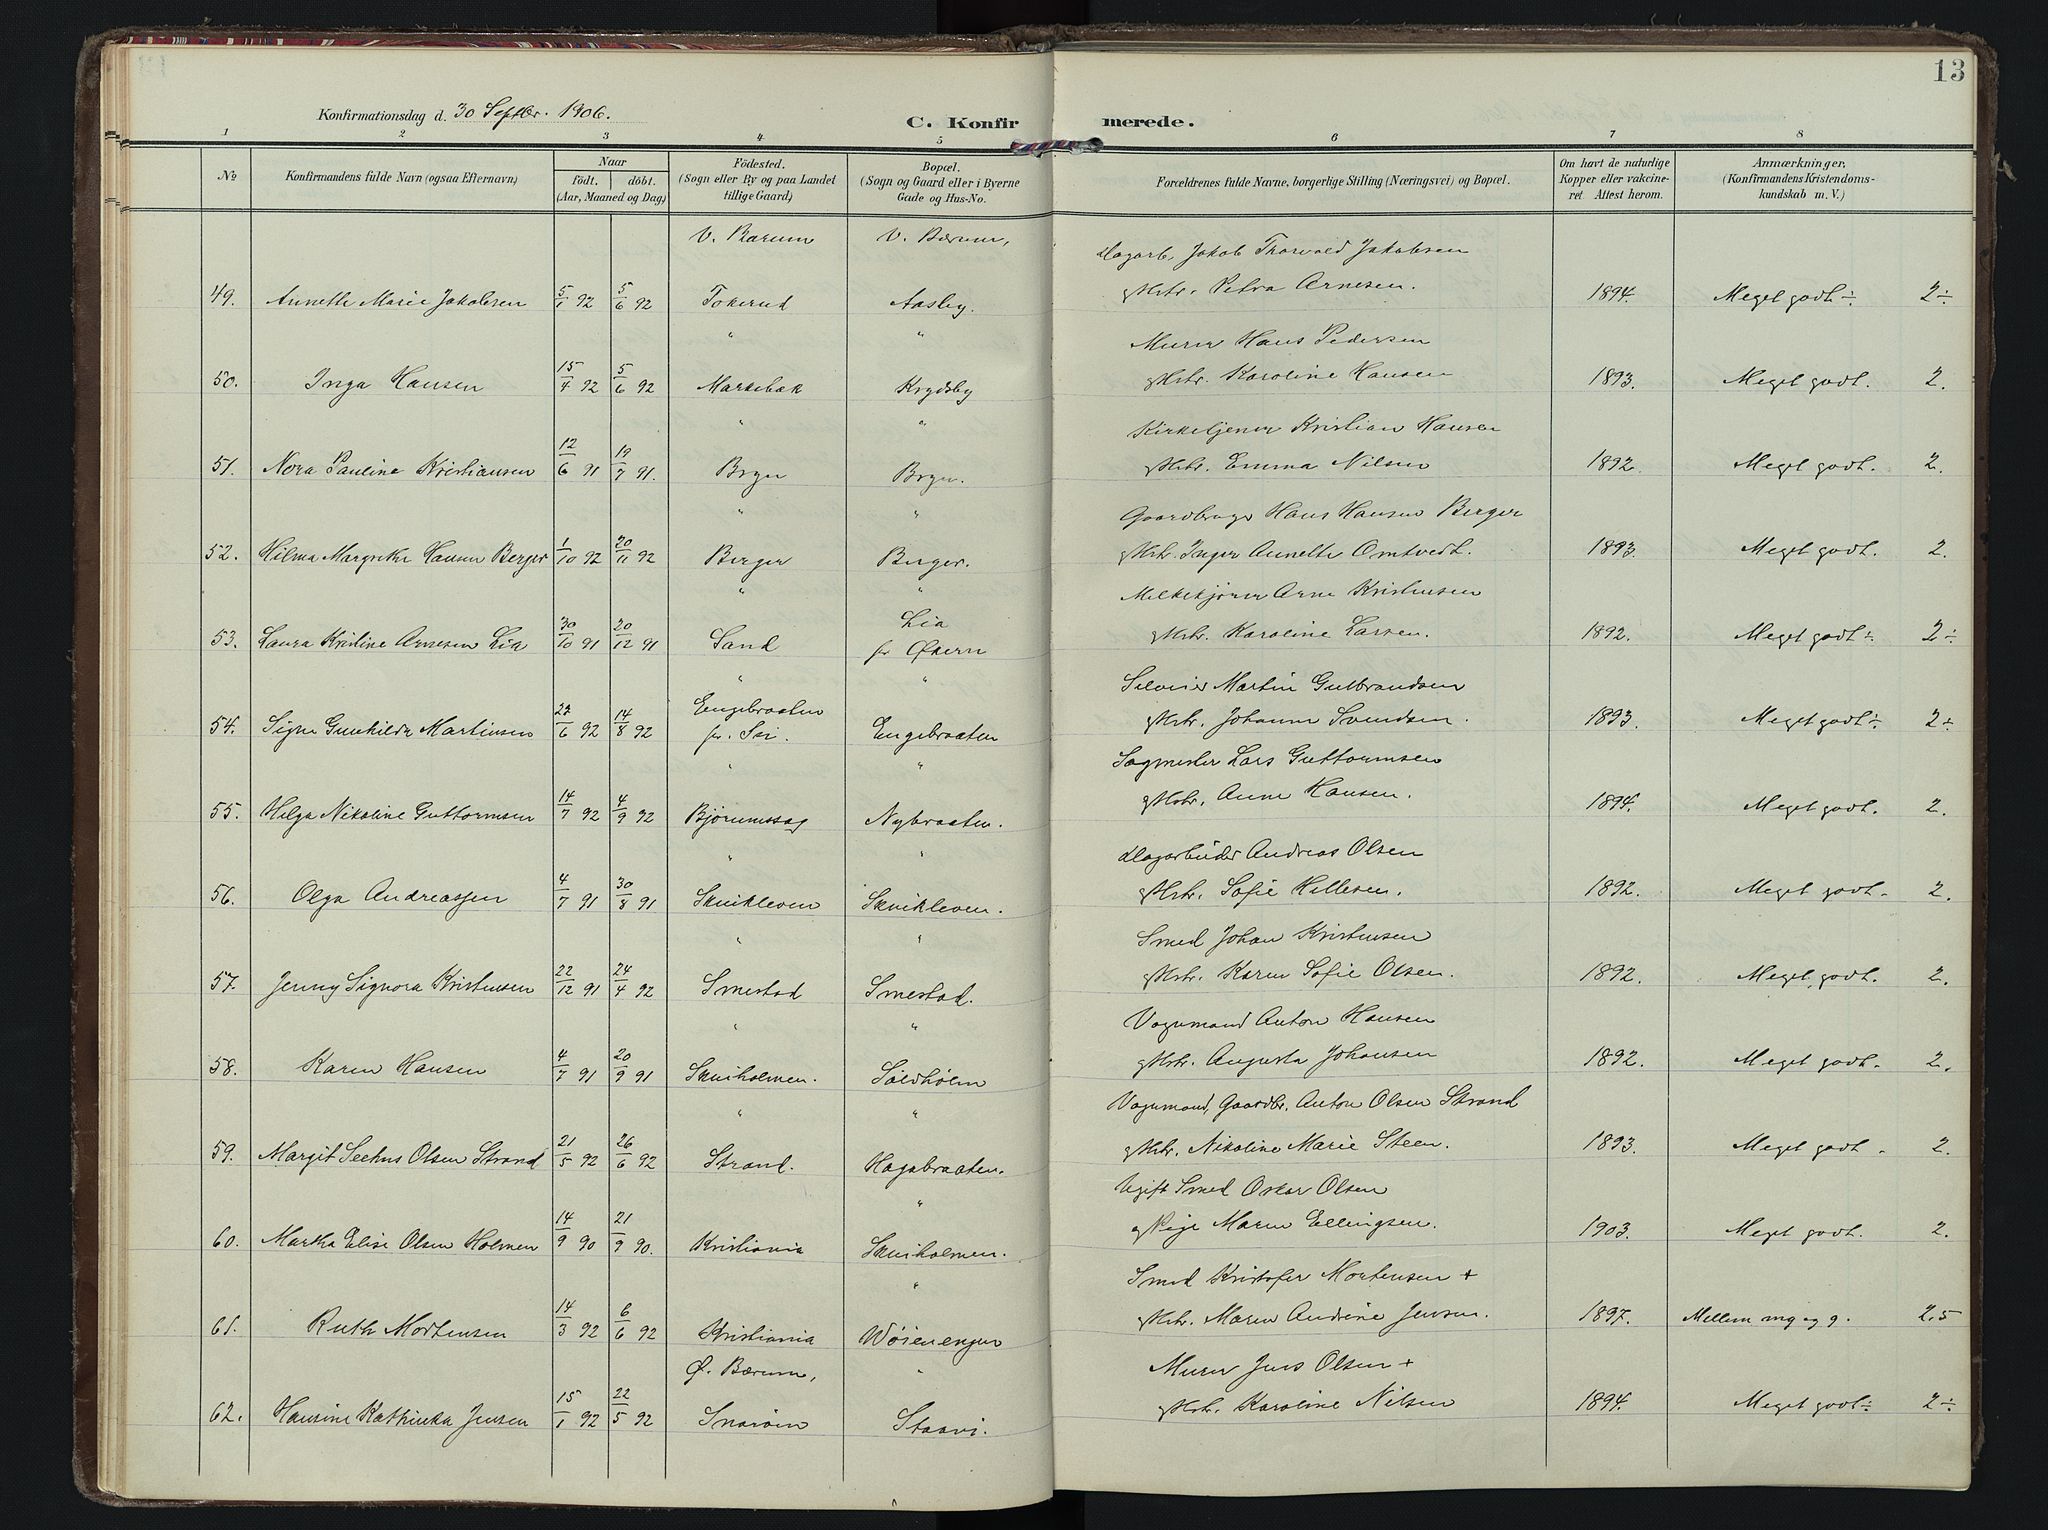 13
Konfirmationsdag d. 30 Septbr. 1906.
C. Konfirmerede.
1 2 3 4 5 6 7 8
No
Konfirmandens fulde Navn (ogsaa Efternavn)
Naar
födt. döbt.
(Aar, Maaned og Dag)
Födested.
(Sogn eller By og paa Landet
tillige Gaard)
Bopæl.
(Sogn og Gaard eller i Byerne
Gade og Hus-No.
Forældrenes fulde Navne, borgerlige Stilling (Næringsvei) og Bopæl.
Om havt de naturlige
Kopper eller vakcine-
ret Attest herom.
Anmærkninger,
(Konfirmandens Kristendoms-
kundskab m. V.)
V. Bærum V. Bærum, Dagarb. Jakob Thorvald Jakobsen
49. Annette Marie Jakobsen 5/1 92 5/6 92 Tokerud Aasby. gHstr. Petra Arnesen. 1894. Meget godt ÷ 2÷
" " Murer Hans Pedersen
50. Inga Hansen 15/4 92 5/6 92 Markebæk Krydsby gHstr. Karoline Hansen 1893. Meget godt. 2.
" " Kirketjener Kristian Hansen
51. Nora Pauline Kristiansen 12/6 91 19/7 91. Bryn Bryn. gHstr. Emma Nilsen 1892. Meget godt. 2.
" " Gaardbruger Hans Hansen Berger
52. Hilma Margrethe Hansen Berger 1/10 92 20/11 92 Berger Berger. gHstr. Inger Annette Omtvedt. 1893. Meget godt. 2.
" " Melkekjörer Arne Kristensen
53. Laura Kristine Arnesen Lia 30/10 91 20/12 91 Sand Lia
fr Økern gHstr. Karoline Larsen. 1892. Meget godt ÷ 2÷
" " Martin Gulbrandsen
54. Signe Gunhilda Martinsen 22/6 92 14/8 92 Engebraaten
fr. Ski. Engebraaten gHstr. Johanne Svendsen. 1893. Meget godt ÷ 2÷
" " Sagmester Lars Guttormsen
55. Helga Nikoline Guttormsen 14/7 92 4/9 92 Bjørumssag Nybraaten. gHstr. Anne Hansen. 1894. Meget godt. 2.
" " Dagarbeider Andreas Olsen
56. Olga Andreassen 4/7 91 30/8 91 Skuikleven Skuikleven. gHstr. Sofie Hellesen. 1892. Meget godt. 2.
" " Smed Johan Kristensen
57. Jenny Signora Kristensen 22/12 91 24/4 92 Smestad Smestad. gHstr. Karen Sofie Olsen. 1892. Meget godt. 2.
" " Vognmand Anton Hansen
58. Karen Hansen 4/7 91 20/9 91 Skuiholmen. Søldhølm gHstr. Augusta Johansen 1892. Meget godt. 2.
" " Vognmand, Gaardbr. Anton Olsen Strand
59. Margit Seehus Olsen Strand 21/5 92 26/6 92 Strand. Hagabraaten. gHstr. Nikoline Marie Steen. 1893. Meget godt. 2.
" Ugift Smed Oskar Olsen
60. Martha Elise Olsen Holmen 14/9 90 21/9 90. Kristiania Skuiholmen. gPige Maren Ellingsen. 1903. Meget godt. 2.
" Smed Kristofer Mortensen +
61. Ruth Mortensen 14/3 92 6/6 92 Kristiania Wøienenger gHstr. Maren Andrine Jensen. 1897. Mellem mg og g. 2,5
Ø. Bærum, " Murer Jens Olsen +
62. Hansine Kathinka Jensen 15/1 92 22/5 92 Snarøen Staavi. gHstr. Karoline Nilsen 1894. Meget godt ÷ 2÷